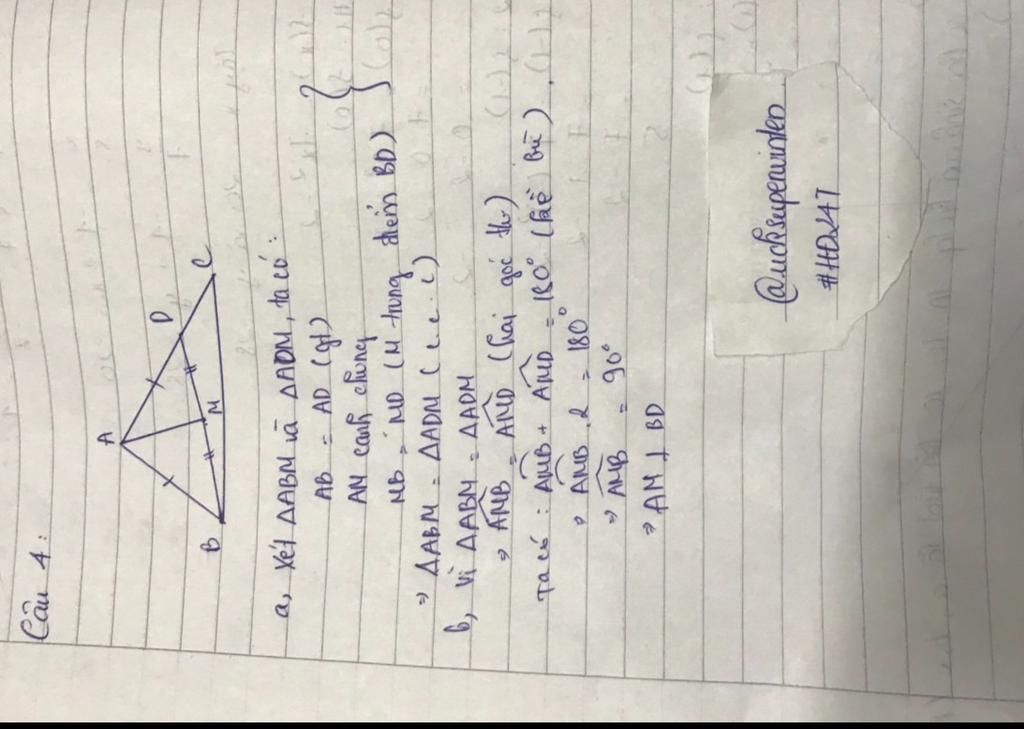 Câu 4:
A
D
B
M
C
a, Xét ΔABM và ΔADM, ta có:
AB = AD (gt)
AM cạnh chung
MB = MD (M trung điểm BD)
⇒ ΔABM = ΔADM (c.c.c)
b, Vì ΔABM = ΔADM
⇒ \widehat{AMB} = \widehat{AMD} (hai góc tư)
Ta có: \widehat{AMB} + \widehat{AMD} = 180° (kề bù).
⇒ \widehat{AMB} . 2 = 180°
⇒ \widehat{AMB} = 90°
⇒ AM ⊥ BD
#HĐ247